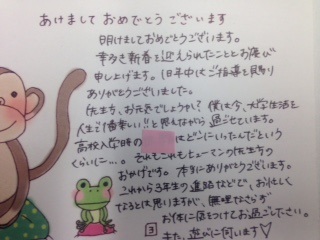 あけまして おめでとう ございます
明けましておめでとうございます。
幸多き新春を迎えられたこととお喜び
申し上げます。旧年中はご指導を賜り
ありがとうございました。
先生方、お元気でしょうか？僕は今、大学生活を
人生で1番楽しい!!と思えながら過ごせています。
高校入学時の はどこにいったんだという
くらいに…。それもこれもヒューマンの先生方の
おかげです。本当にありがとうございます。
これから3年生の進路などで、お忙しく
なるとは思いますが、無理なさらず
お体に気をつけてお過ごしください。
また、遊びに伺います♡
3